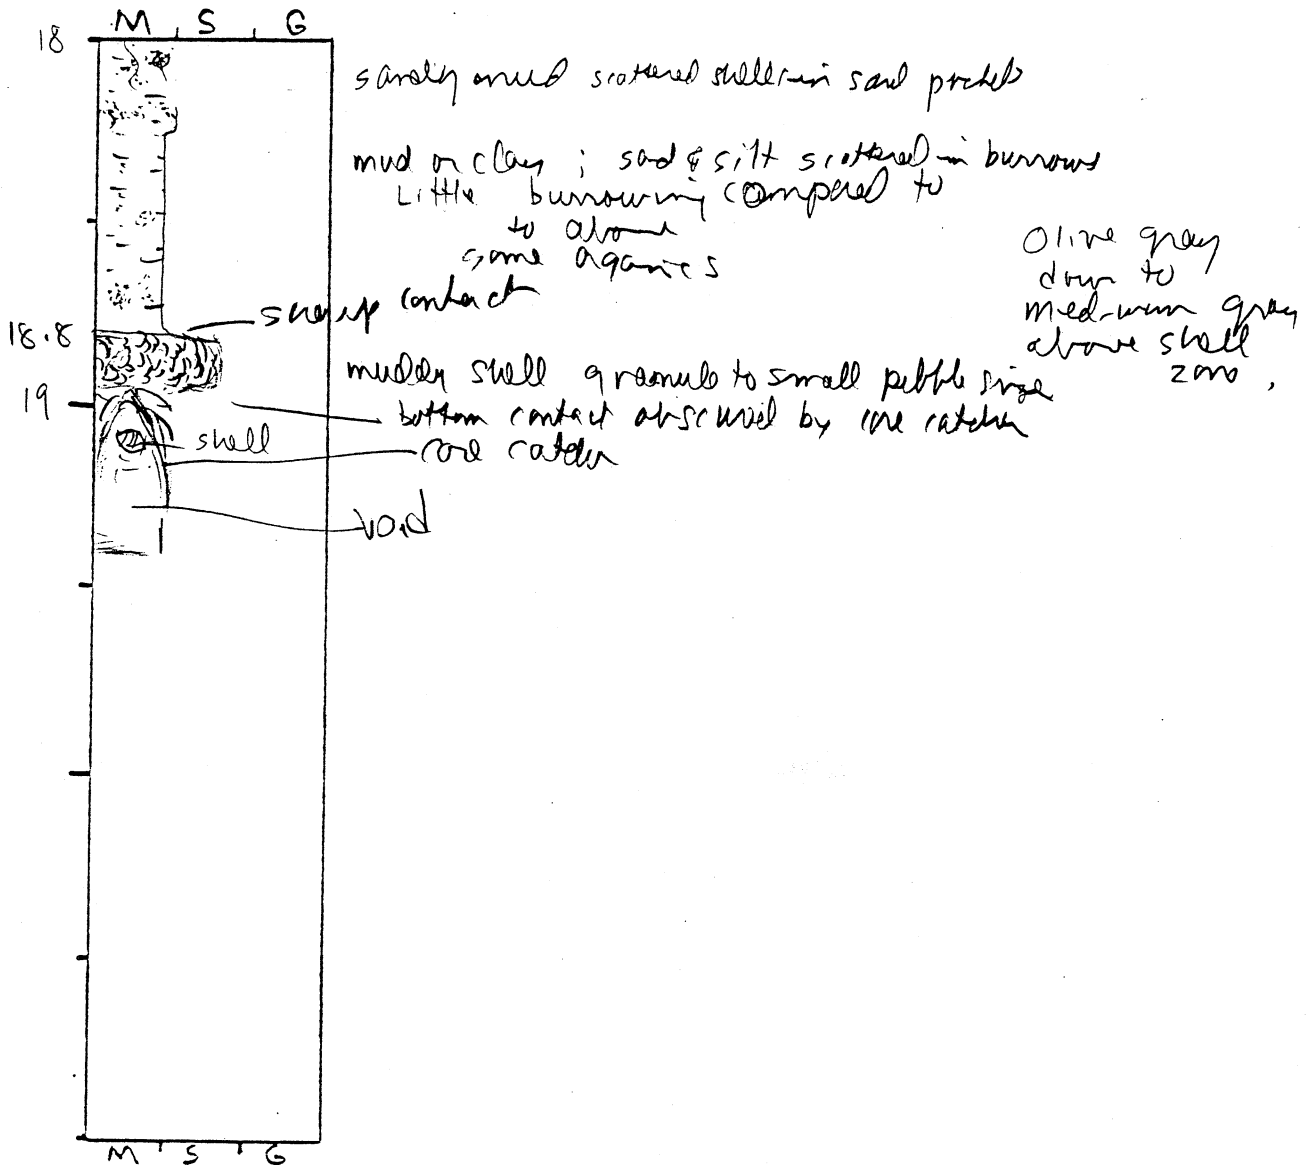 M S G
18
sandy mud scattered shell in sand pockets
mud or clay ; sand & silt scattered in burrows
Little burrowing compared to
to above
some organics
Olive gray
down to
medium gray
above shell
zone,
sharp contact
18.8
muddy shell granule to small pebble size
19
bottom contact obscured by core catcher
shell
core catcher
void
M S G